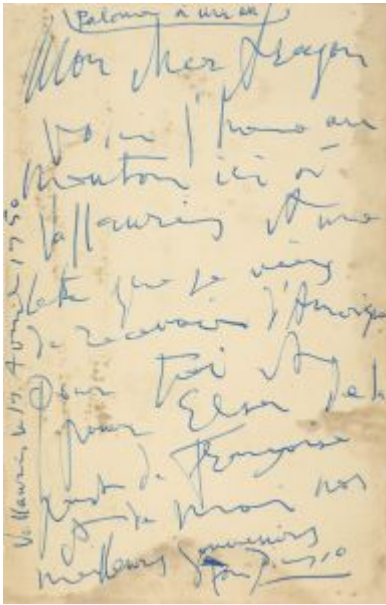 Mon cher Aragon
Voici l'homme au
mouton ici à
Vallauris et une
lettre que je viens
de recevoir d'Amérique
pour toi et
pour Elsa de la
part de Françoise
et de moi nos
meilleurs souvenirs
Ton Picasso
Vallauris le
1950